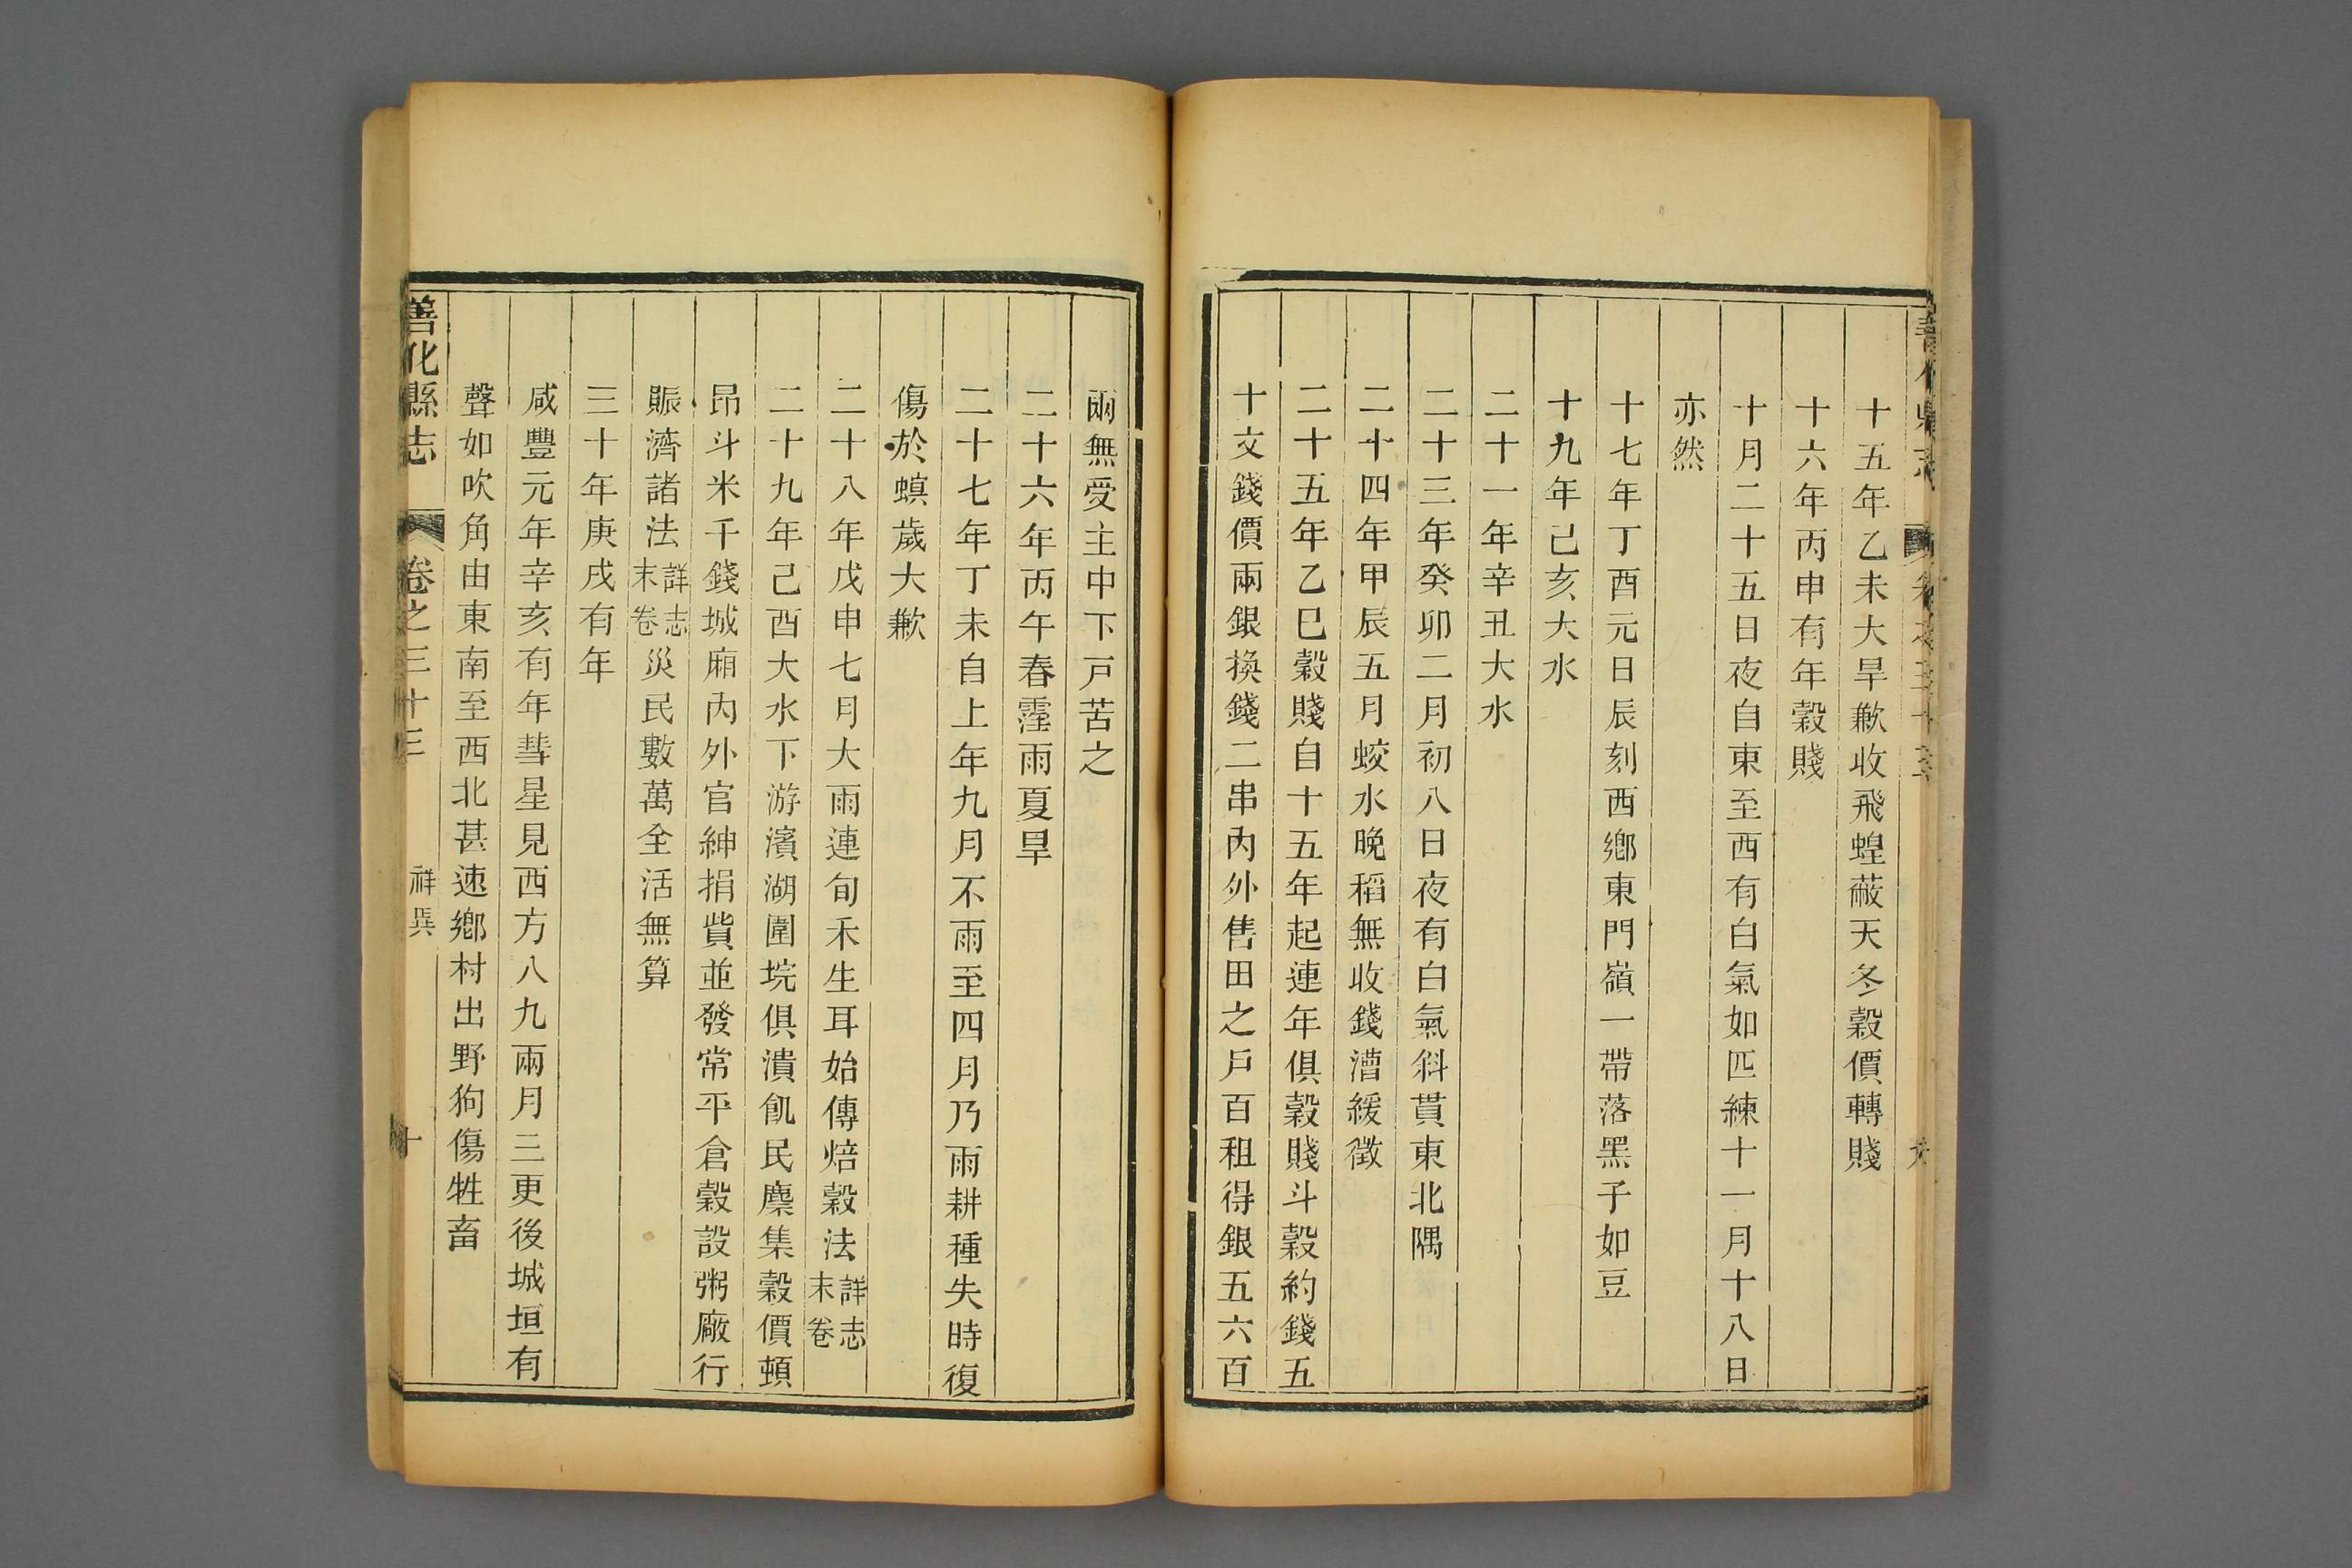 十五年乙未大旱歉收飛蝗蔽天冬穀價轉賤
十六年丙申有年穀賤
十月二十五日夜自東至西有白氣如匹練十一月十八日
亦然
十七年丁酉元日辰刻西鄉東門嶺一帶落黑子如豆
十九年己亥大水
二十一年辛丑大水
二十三年癸卯二月初八日夜有白氣斜貫東北隅
二十四年甲辰五月蛟水晚稻無收錢漕緩徵
二十五年乙巳穀賤自十五年起連年俱穀賤斗穀約錢五
十文錢價兩銀換錢二串內外售田之戶百租得銀五六百
兩無受主中下戸苦之
二十六年丙午春霪雨夏旱
二十七年丁未自上年九月不雨至四月乃雨耕種失時復
傷於螟歲大歉
二十八年戊申七月大雨連旬禾生耳始傳焙穀法詳志末卷
二十九年己酉大水下游濱湖圍垸俱潰飢民麇集穀價頓
昂斗米千錢城廂內外官紳捐貲並發常平倉穀設粥廠行
賑濟諸法詳志末卷災民數萬全活無算
三十年庚戌有年
咸豐元年辛亥有年彗星見西方八九兩月三更後城垣有
聲如吹角由東南至西北甚速鄉村出野狗傷牲畜
善化縣志 卷之三十三 祥異 十